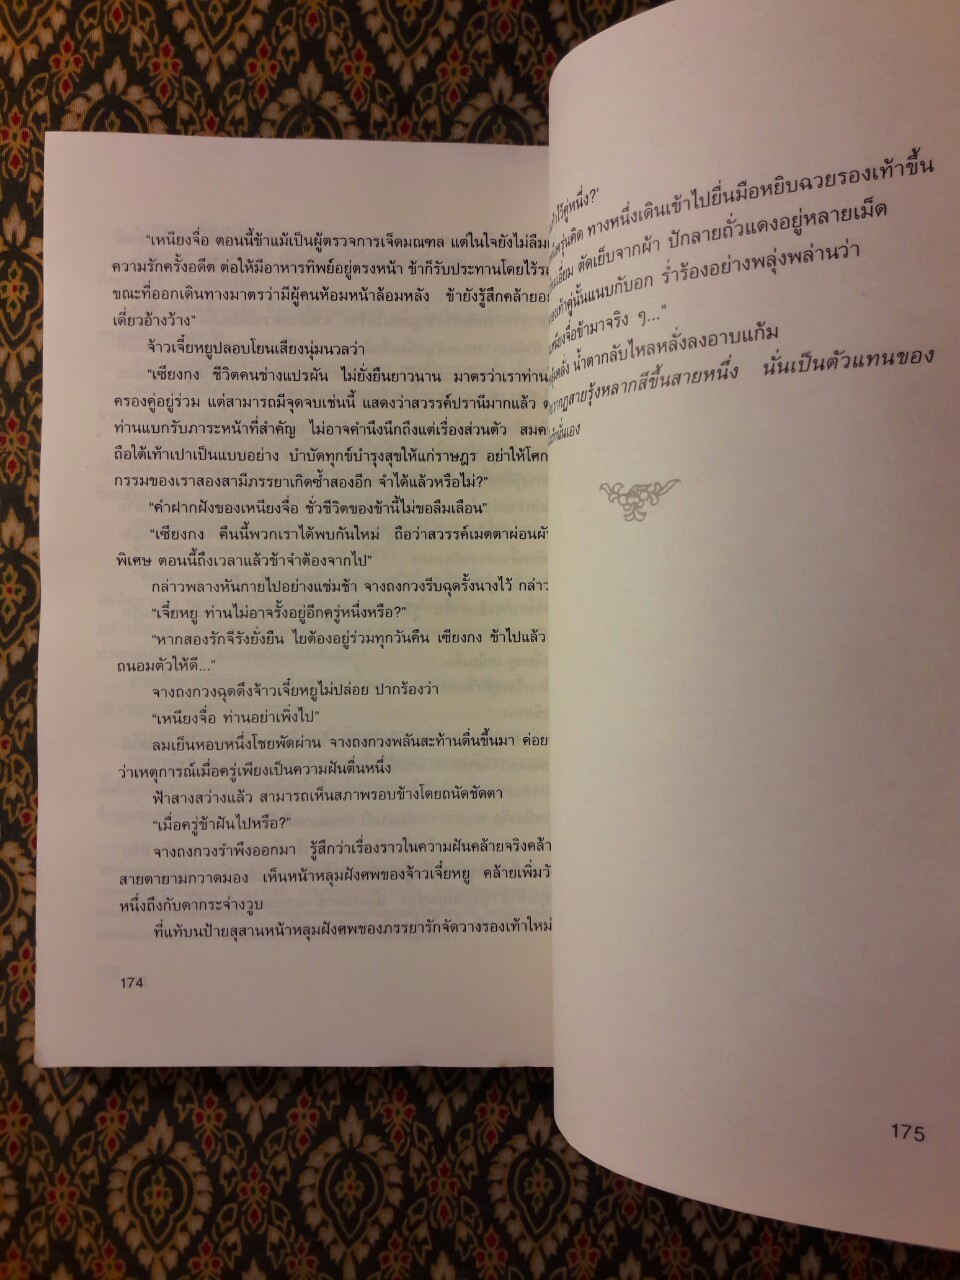 “เหนียงจื่อ ตอนนี้ข้าแม้เป็นผู้ตรวจการเจ็ดมณฑล แต่ในใจยังไม่ลืม
ความรักครั้งอดีต ต่อให้มีอาหารทิพย์อยู่ตรงหน้า ข้าก็รับประทานโดยไร้
ขณะที่ออกเดินทางมาตรว่ามีผู้คนห้อมหน้าล้อมหลัง ข้ายังรู้สึกคล้าย
เดี่ยวอ้างว้าง”
จ้าวเจี๋ยหยูปลอบโยนเสียงนุ่มนวลว่า
“เซียงกง ชีวิตคนช่างแปรผัน ไม่ยั่งยืนยาวนาน มาตรว่าเราท่าน
ครองคู่อยู่ร่วม แต่สามารถมีจุดจบเช่นนี้ แสดงว่าสวรรค์ปรานีมากแล้ว
ท่านแบกรับภาระหน้าที่สำคัญ ไม่อาจคำนึงนึกถึงแต่เรื่องส่วนตัว
ถือใต้เท้าเปาเป็นแบบอย่าง บำบัดทุกข์บำรุงสุขให้แก่ราษฎร อย่าให้
กรรมของเราสองสามีภรรยาเกิดซ้ำสองอีก จำได้แล้วหรือไม่?”
“คำฝากฝังของเหนียงจื่อ ชั่วชีวิตของข้านี้ไม่ขอลืมเลือน”
“เซียงกง คืนนี้พวกเราได้พบกันใหม่ ถือว่าสวรรค์เมตตา
พิเศษ ตอนนี้ถึงเวลาแล้วข้าจำต้องจากไป”
กล่าวพลางหันกายไปอย่างแช่มช้า จางถงกวงรีบฉุดรั้งนางไว้ กล่าว
“เจี๋ยหยู ท่านไม่อาจรั้งอยู่อีกครู่หนึ่งหรือ?”
“หากสองรักจีรังยั่งยืน ไยต้องอยู่ร่วมทุกวันคืน เซียงกง ข้าไปแล้ว
ถนอมตัวให้ดี...”
จางถงกวงฉุดดึงจ้าวเจี๋ยหยูไม่ปล่อย ปากร้องว่า
“เหนียงจื่อ ท่านอย่าเพิ่งไป”
ลมเย็นหอบหนึ่งโชยพัดผ่าน จางถงกวงพลันสะท้านตื่นขึ้นมา
ว่าเหตุการณ์เมื่อครู่เพียงเป็นความฝันตื่นหนึ่ง
ฟ้าสางสว่างแล้ว สามารถเห็นสภาพรอบข้างโดยถนัดชัดตา
“เมื่อครู่ข้าฝันไปหรือ?”
จางถงกวงรำพึงออกมา รู้สึกว่าเรื่องราวในความฝันคล้ายจริง
สายตายามกวาดมอง เห็นหน้าหลุมฝังศพของจ้าวเจี๋ยหยู คล้ายเพิ่ม
หนึ่งถึงกับตากระจ่างวูบ
ที่แท้บนป้ายสุสานหน้าหลุมฝังศพของภรรยารักจัดวางรองเท้าใหม่
174
ไว้คู่หนึ่ง?’
ครุ่นคิด ทางหนึ่งเดินเข้าไปยื่นมือหยิบฉวยรองเท้าขึ้น
ตัดเย็บจากผ้า ปักลายถั่วแดงอยู่หลายเม็ด
คู่นั้นแนบกับอก ร่ำร้องอย่างพลุ่งพล่านว่า
ข้ามาจริง ๆ...”
น้ำตากลับไหลหลั่งลงอาบแก้ม
สายรุ้งหลากสีขึ้นสายหนึ่ง นั่นเป็นตัวแทนของ
นั่นเอง
175